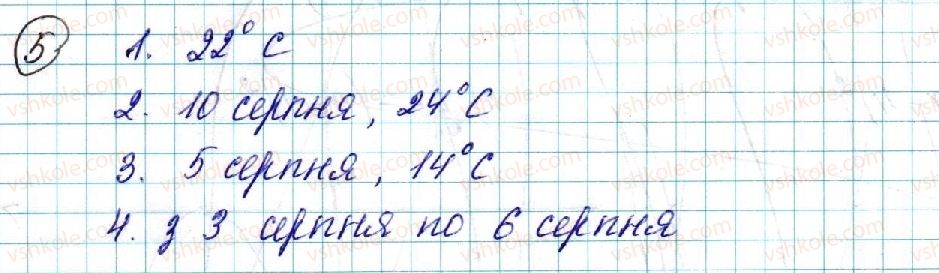 5 1. 22° C
2. 10 серпня, 24°C
3. 5 серпня, 14°C
4. з 3 серпня по 6 серпня
vshkole.com